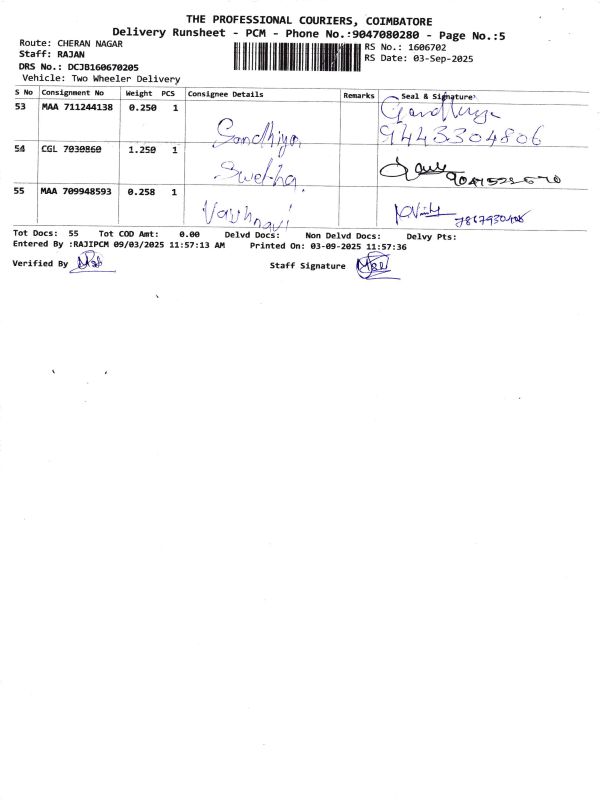 THE PROFESSIONAL COURIERS, COIMBATORE
Delivery Runsheet - PCM - Phone No.:9047080280 - Page No.:5
Route: CHERAN NAGAR
Staff: RAJAN
DRS No.: DCJB160670205
Vehicle: Two Wheeler Delivery
RS No.: 1606702
RS Date: 03-Sep-2025
S No Consignment No Weight PCS Consignee Details Remarks Seal & Signature
53 MAA 711244138 0.250 1 Sandhiya
9443304806
54 CGL 7030860 1.250 1 Swetha
55 MAA 709948593 0.258 1 Vaishnavi
Tot Docs: 55 Tot COD Amt: 0.00 Delvd Docs: Non Delvd Docs: Delvy Pts:
Entered By :RAJIPCM 09/03/2025 11:57:13 AM Printed On: 03-09-2025 11:57:36
Verified By
Staff Signature